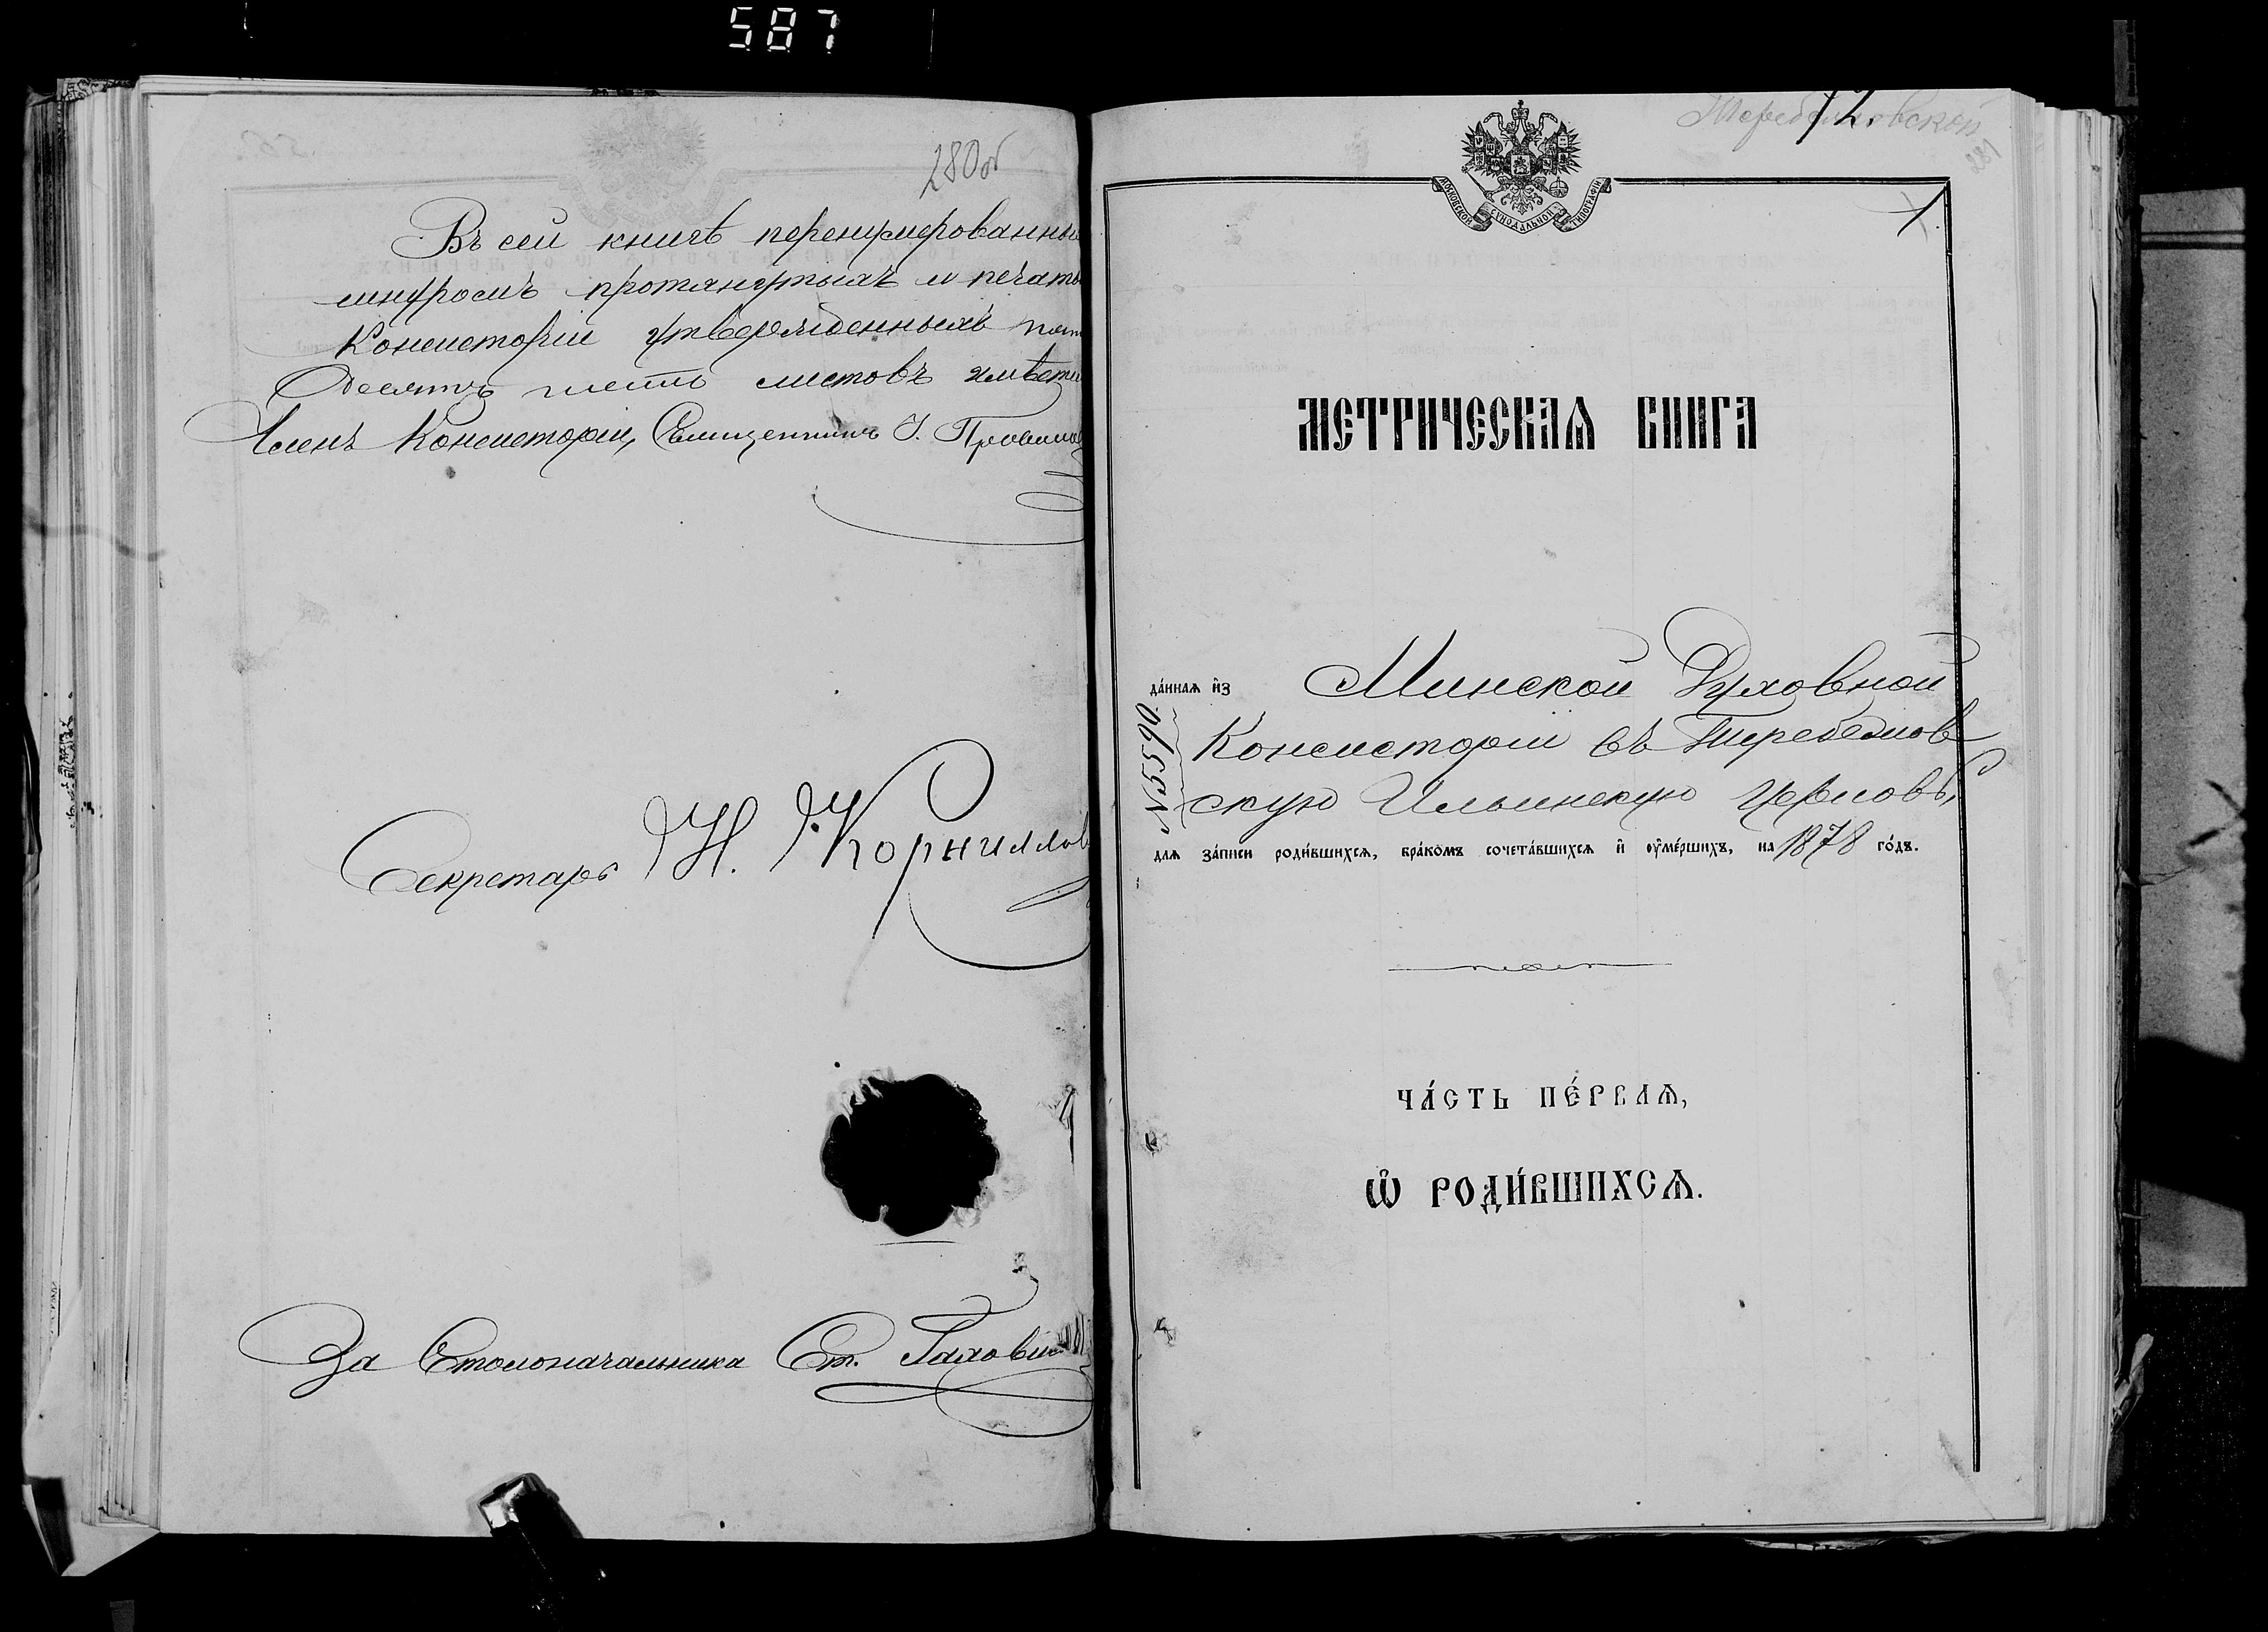 587
280об
Въ сей книгѣ перенумерованны
шнуромъ протянутыхъ и печать
Консисторіи утвержденныхъ пят
десятъ шесть листовъ имѣетъ
Членъ Консисторіи, Священникъ І.
Секретарь Н. Корниллов
За Столоначальника Ст.
72.
281
МОСКОВСКОЙ СѴНОДАЛЬНОЙ ТИПОГРАФІИ
МЕТРИЧЕСКАѦ КНИГА
да́ннаѧ и҆з Минской Духовной
Консисторіи въ Теребежов
скую Ильинскую Церковь,
№ 5590
длѧ за́писи роди́вшихсѧ, бра́комъ сочета́вшихсѧ и҆ оу҆ме́ршихъ, на 1878 го́дъ.
ЧА́СТЬ ПЕ́РВАѦ,
Ѽ РОДИ́ВШИХСѦ.